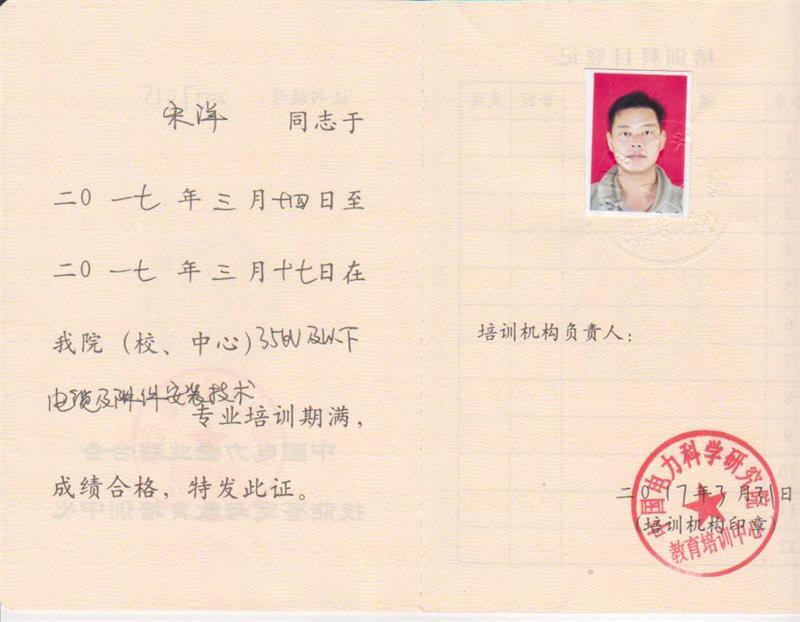 宋洋 同志于
二〇一七年三月十四日至
二〇一七年三月十七日在
我院(校、中心)35kV及以下
电缆及附件安装技术
专业培训期满,
成绩合格,特发此证。
培训机构负责人:
二〇17年3月31日
(培训机构印章)
中国电力科学研究院
教育培训中心